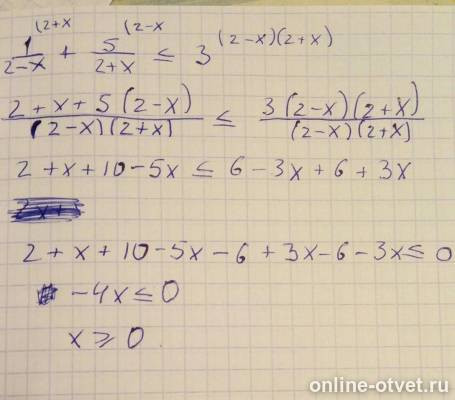 (2+x (2-x (2-x)(2+x)
1/2-x + 5/2+x ≤ 3
2+x+5(2-x)/(2-x)(2+x) ≤ 3(2-x)(2+x)/(2-x)(2+x)
2+x+10-5x ≤ 6-3x+6+3x
2+x+10-5x-6+3x-6-3x≤0
-4x≤0
x≥0
online-otvet.ru